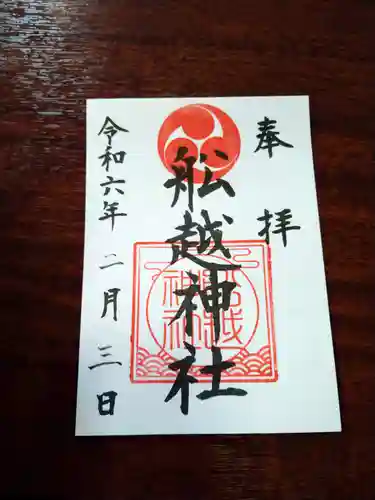 奉拝
船越神社
令和六年二月三日
船越神社